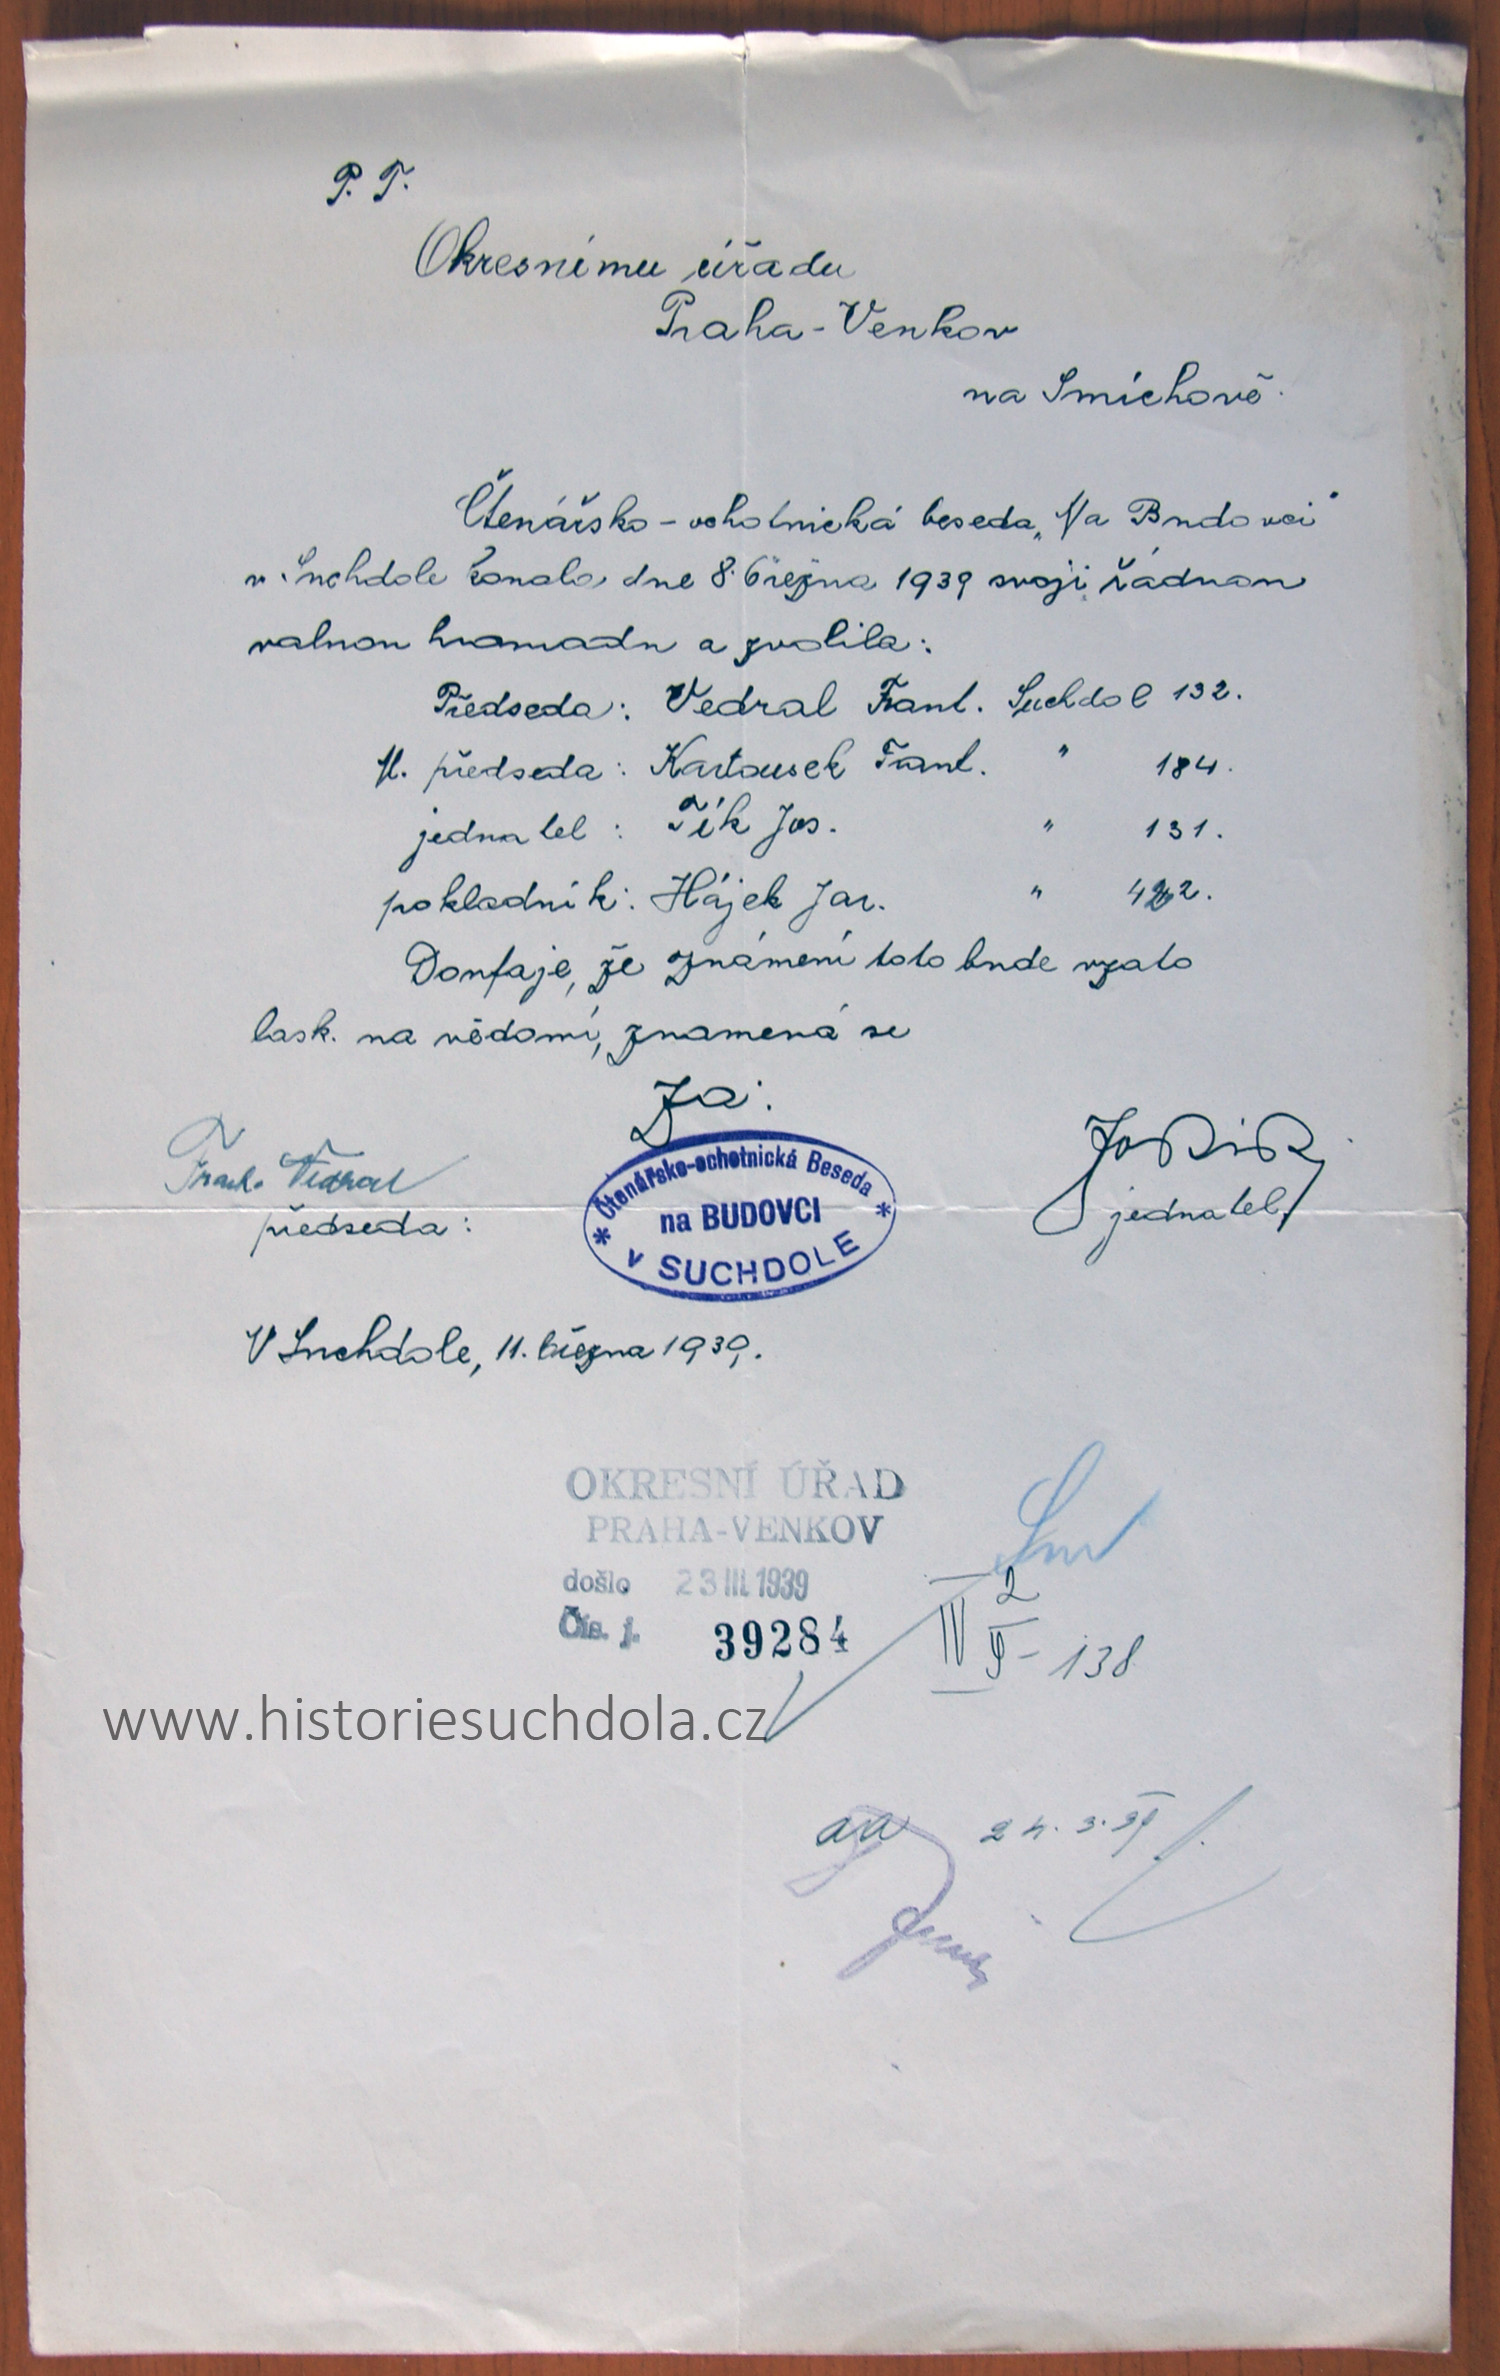 P. T.
Okresnímu úřadu
Praha-Venkov
na Smíchově.
Čtenářsko-ochotnická beseda „Na Budovci"
v Suchdole konala dne 8. března 1939 svoji řádnou
valnou hromadu a zvolila:
Předseda: Vedral Frant. Suchdol 132.
M. předseda: Kartousek Frant. " 184.
jednatel: Tík Jos. " 131.
pokladník: Hájek Jar. "
Doufaje, že známení toto bude vzato
lask. na vědomí, znamená se
Za:
Frant. Vedral
předseda:
Čtenářsko-ochotnická Beseda
na BUDOVCI
v SUCHDOLE
Jos Tík
jednatel
V Suchdole, 11. března 1939.
OKRESNÍ ÚŘAD
PRAHA-VENKOV
došlo 23 III. 1939
Čís. j. 39284
IV 2
9 - 138
www.historiesuchdola.cz
aa 24. 3. 39